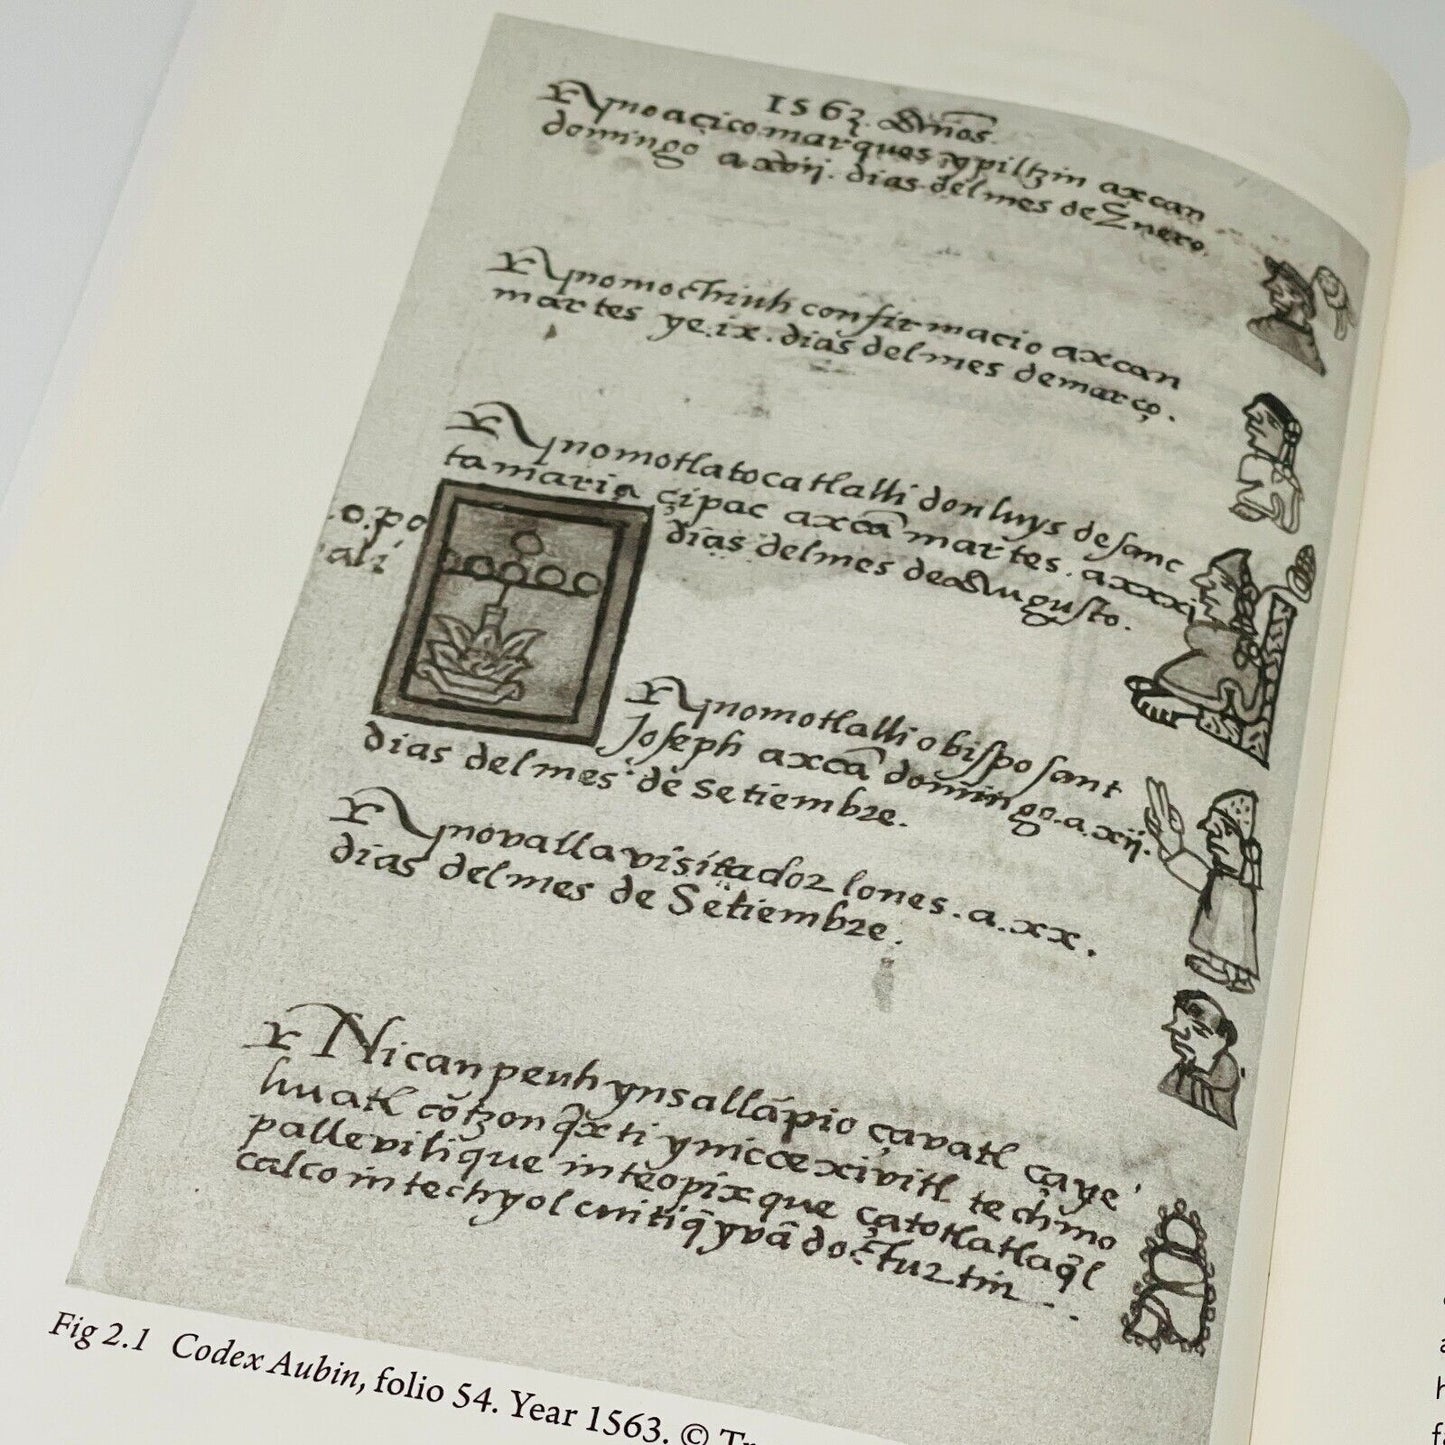 1563. Años.
ynoaçico marques ypiltzin axcan
domingo a xvij. dias delmes de Enero.
ynomochiuh confirmacio axcan
martes ye.ix. dias delmes demarço.
ynomotlatocatlalli donluys de sanc
tamaria çipac axcã martes. axxxi
dias delmes deaAugusto.
.o.po
ali
ynomotlalli obispo sant
Joseph axcã domingo.a.xij.
dias delmes de setiembre.
ynovalla visitador lones.a.xx.
dias delmes de Setiembre.
Nican peuh ynsallãpio çavatl çaye
huatl cõtzon q̃xti ynicce xivitl techmo
pallevilique inteopixque çatotlatlaq̃l
calco intechyolcuitiq̃ yvã doctur tin
Fig 2.1 Codex Aubin, folio 54. Year 1563. ©